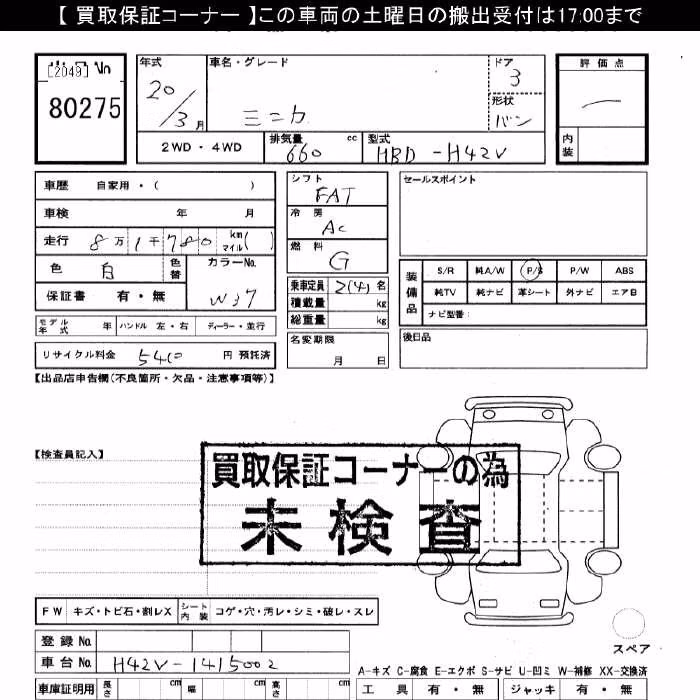 【 買取保証コーナー 】この車両の土曜日の搬出受付は17:00まで
[2049]
80275
年式
20/3月
車名・グレード
ミニカ
ドア
3
形状
バン
評価点
内装
2WD・4WD
排気量 660 cc
型式 HBD-H42V
車歴 自家用・( )
車検 年 月
走行 8万1千780 km マイル( )
色 白 色替
カラーNo. W37
保証書 有・無
モデル年式 年 ハンドル 左・右 ディーラー・並行
リサイクル料金 5410 円 預託済
シフト FAT
冷房 AC
燃料 G
乗車定員 2(4) 名
積載量 kg
総重量 kg
名変期限 月 日
セールスポイント
装備品
S/R 純A/W P/S P/W ABS
純TV 純ナビ 革シート 外ナビ エアB
ナビ型番:
後日品
【出品店申告欄(不良箇所・欠品・注意事項等)】
【検査員記入】
買取保証コーナーの為
未検査
FW キズ・トビ石・割レX シート内装 コゲ・穴・汚レ・シミ・破レ・スレ
スペア
登録No.
車台No. H42V-1415002
A-キズ C-腐食 E-エクボ S-サビ U-凹ミ W-補修 XX-交換済
車庫証明用 長さ cm 幅 cm 高さ cm
工具 有・無 ジャッキ 有・無